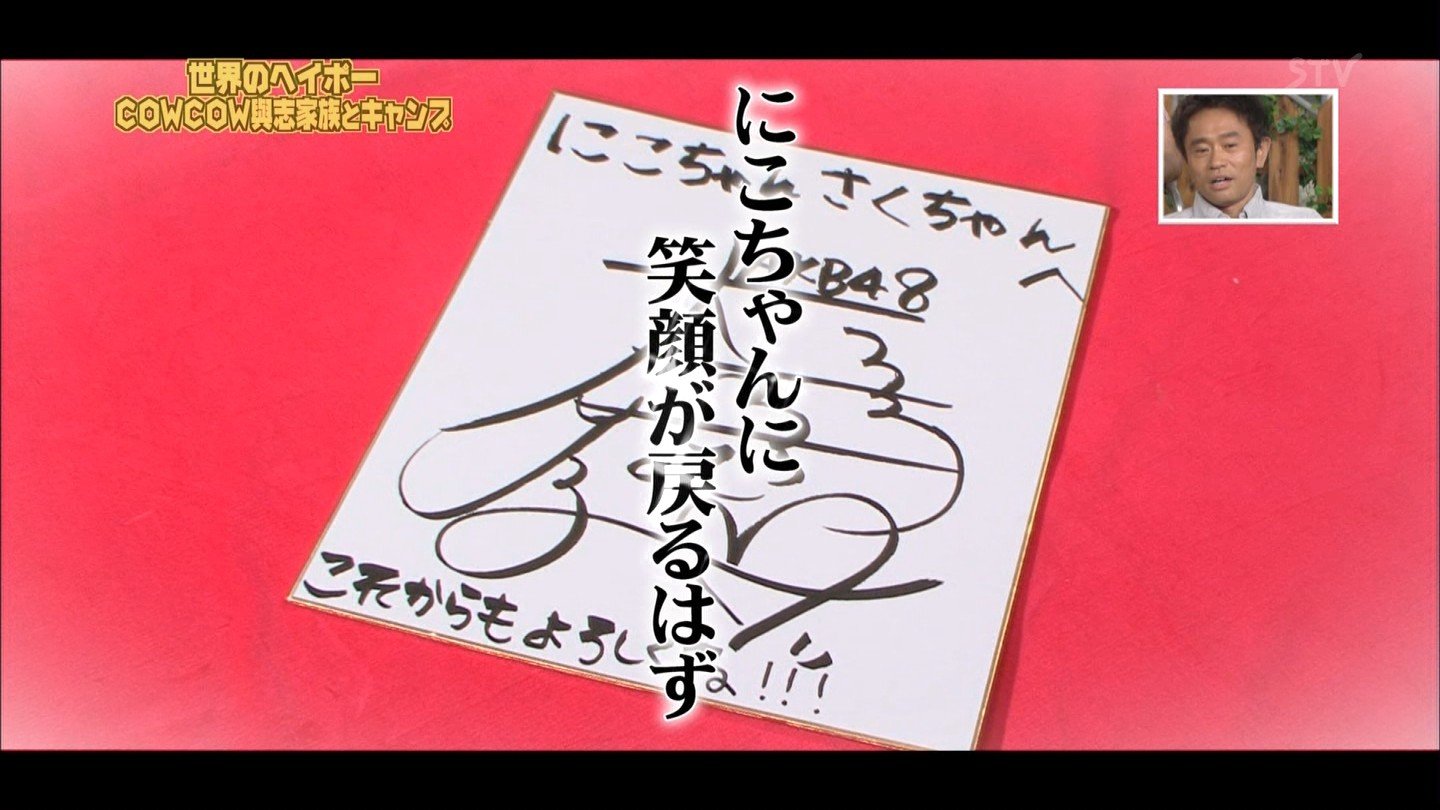 世界のヘイポー
COWCOW與志家族とキャンプ
STV
にこちゃんに
笑顔が戻るはず
にこちゃん さくちゃんへ
AKB48
これからもよろしくね!!!